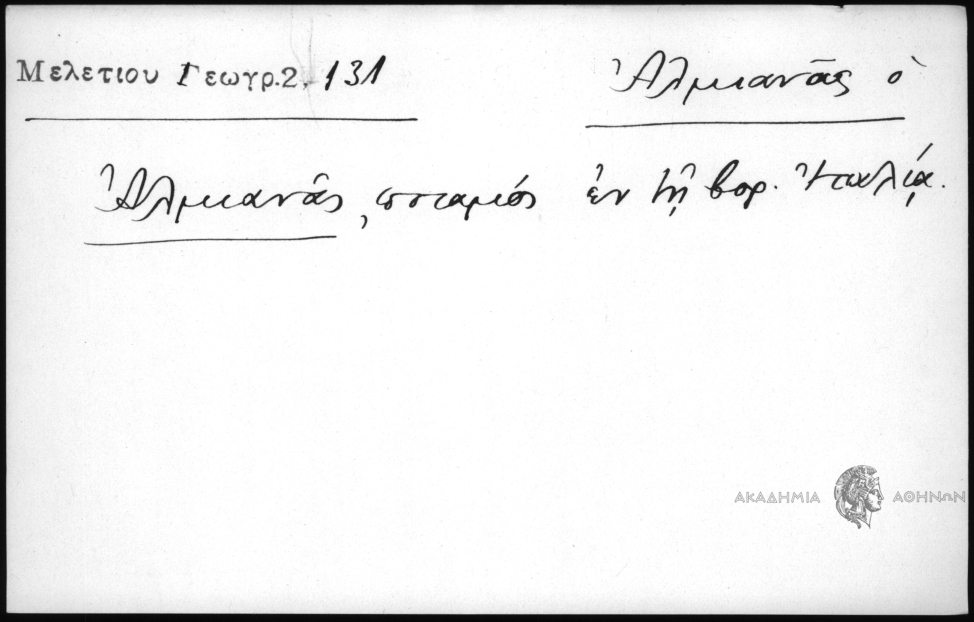 Μελετιου Γεωγρ. 2. 131
Ἀλμιανᾶς ὁ
Ἀλμιανᾶς, ποταμός ἐν τῇ βορ. Ἰταλίᾳ.
ΑΚΑΔΗΜΙΑ ΑΘΗΝΩΝ